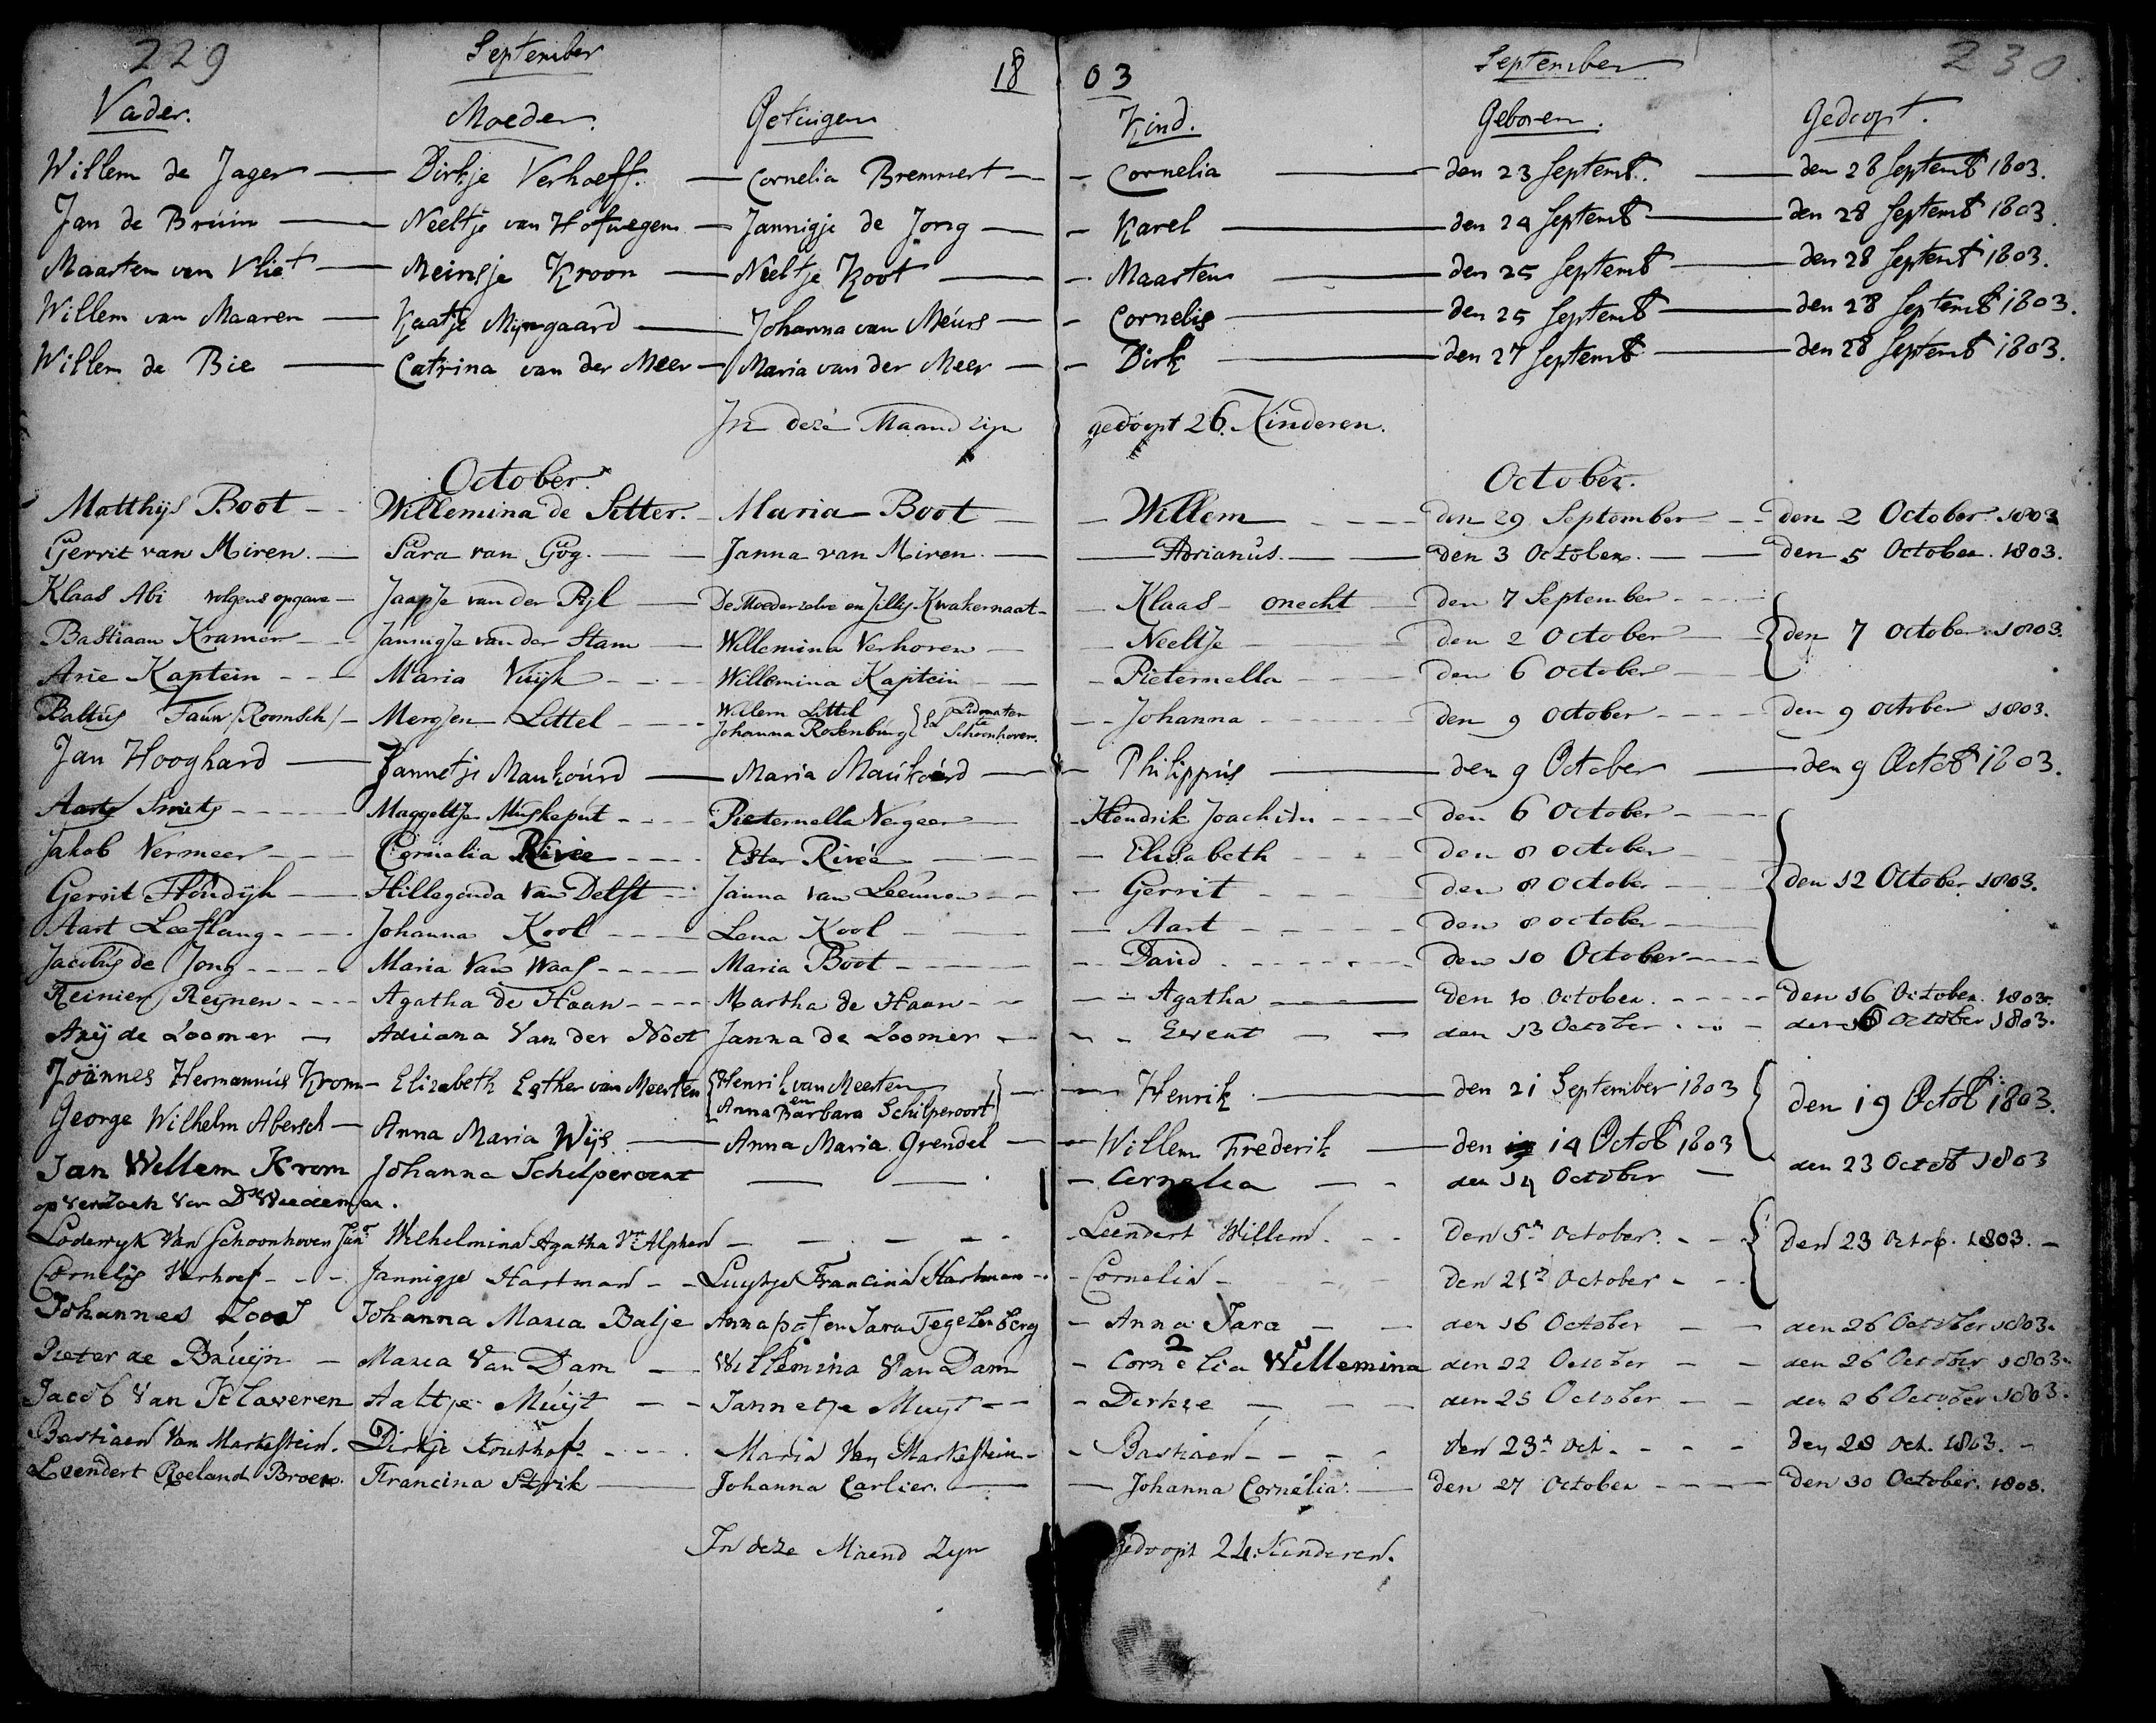 229 September 18 03 September 230
Vader. Moeder. Getuigen Kind. Geboren. Gedoopt.
Willem de Jager — Dirkje Verhoeff. — Cornelia Bremmert — Cornelia — den 23 Septemb. — den 28 Septemb 1803.
Jan de Bruin — Neeltje van Hofwegen — Jannigje de Jong — Karel — den 24 Septemb — den 28 Septemb 1803.
Maarten van Vliet — Meinsje Kroon — Neeltje Koot — Maarten — den 25 Septemb — den 28 Septemb 1803.
Willem van Maaren — Kaatje Mijngaard — Johanna van Meurs — Cornelis — den 25 Septemb — den 28 Septemb 1803.
Willem de Bie — Catrina van der Meer — Maria van der Meer — Dirk — den 27 Septemb — den 28 Septemb 1803.
In deze Maand zijn gedoopt 26. Kinderen.
October. October.
Matthijs Boot — Willemina de Sitter. — Maria Boot — Willem — den 29 September — den 2 October 1803
Gerrit van Miren. — Sara van Gog. — Janna van Miren. — Adrianus. — den 3 October. — den 5 October. 1803.
Klaas Abi volgens opgave — Jaapje van der Pijl — De Moeder zelve en Jilly Kwakernaat — Klaas onecht — den 7 September
Bastiaan Kramer — Jannigje van der Stam — Willemina Verhoren — Neeltje — den 2 October — den 7 October 1803.
Arie Kaptein — Maria Vuijk — Willemina Kaptein — Pieternella — den 6 October
Baltus Fauw /Roomsch/ — Mensjen Littel — Willem Littel Johanna Rosenburg Ledematen te Schoonhoven. — Johanna — den 9 October — den 9 October 1803.
Jan Hooghard — Jannetje Mankourd — Maria Mankourd — Philippus — den 9 October — den 9 Octob 1803.
Aart Smits — Maggeltje Muskeput — Pieternella Vergeer — Hendrik Joachim — den 6 October
Jakob Vermeer — Cornelia Rivée — Ester Rivée — Elisabeth — den 8 October
Gerrit Hondijk — Hillegonda van Delft — Janna van Leeuwen — Gerrit — den 8 October — den 12 October 1803.
Aart Leeflang — Johanna Kool — Lena Kool — Aart — den 8 october
Jacobus de Jong — Maria van Waas — Maria Boot — David — den 10 October
Reinier Reijnen — Agatha de Haan — Martha de Haan — Agatha — den 10 October. — den 16 October. 1803.
Arij de Loomer — Adriana Van der Noot — Janna de Loomer — Evert — den 13 October — den 16 October 1803.
Joännes Hermannus Krom — Elizabeth Esther van Meerten — Henrik van Meerten en Anna Barbara Schilperoort — Henrik — den 21 September 1803 — den 19 Octob 1803.
George Wilhelm Abersch — Anna Maria Wijs — Anna Maria Grendel — Willem Frederik — den 14 Octob 1803
Jan Willem Krom Johanna Schilperoort — Cornelia — den 14 October — den 23 Octob 1803
op Verzoek Van Ds Weideman.
Lodewyk Van Schoonhoven Janr Wilhelmina Agatha Vn Alphen — Leendert Willem. — Den 5n October. — Den 23 Octob. 1803. —
Cornelis Verhoef — Jannigje Hartman — Luytje Francina Hartman — Cornelia — Den 21n October
Johannes Loos Johanna Maria Balje Anna Sara Tegelenberg — Anna Sara — den 16 October — den 26 October 1803.
Pieter de Bruijn — Maria Van Dam — Willemina Van Dam — Cornelia Willemina den 22 October — den 26 October 1803.
Jacob Van Klaveren Aaltje Muijt — Jannetje Muyt — Dirkje — den 25 October — den 26 October 1803.
Bastiaen Van Markestein. Dirkje Kouthoff — Maria Van Markestein — Bastiaen — den 23n Oct. — Den 28 Oct. 1803. —
Leendert Roeland Broer. Francina Strik — Johanna Carlier. — Johanna Cornelia. — den 27 October — den 30 October. 1803.
In deze Maend Zyn gedoopt 24. Kinderen.